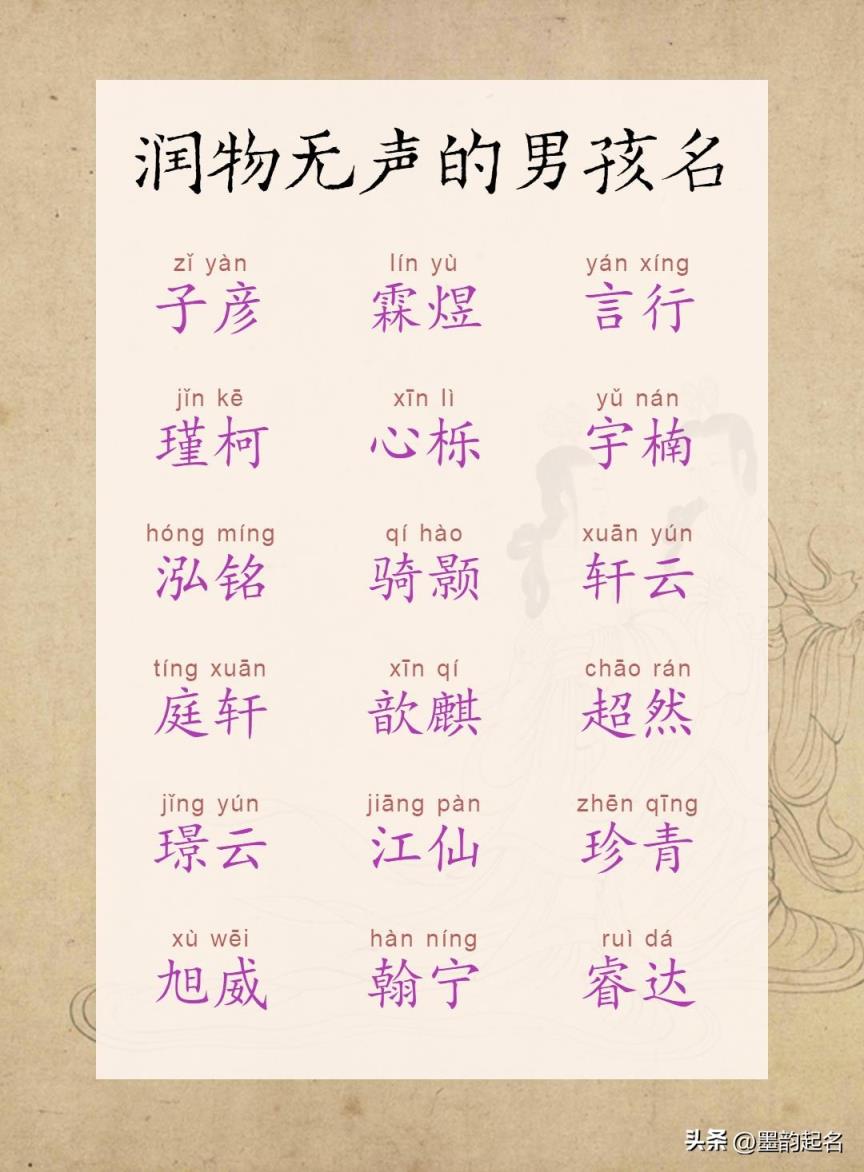 润物无声的男孩名
zǐ yàn lín yù yán xíng
子彦 霖煜 言行
jǐn kē xīn lì yǔ nán
瑾柯 心栎 宇楠
hóng míng qí hào xuān yún
泓铭 骑颢 轩云
tíng xuān xīn qí chāo rán
庭轩 歆麒 超然
jǐng yún jiāng pàn zhēn qīng
璟云 江仙 珍青
xù wēi hàn níng ruì dá
旭威 翰宁 睿达
头条 @墨韵起名